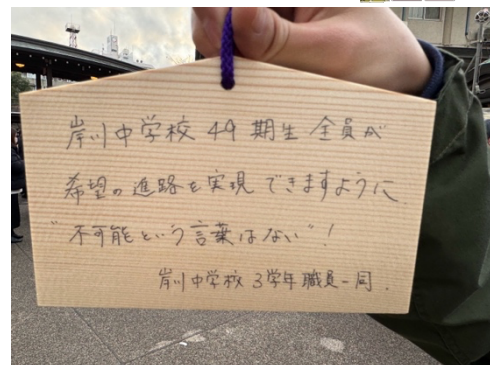 岸川中学校 49期生 全員が
希望の進路を実現できますように
"不可能という言葉はない"!
岸川中学校 3学年職員一同.